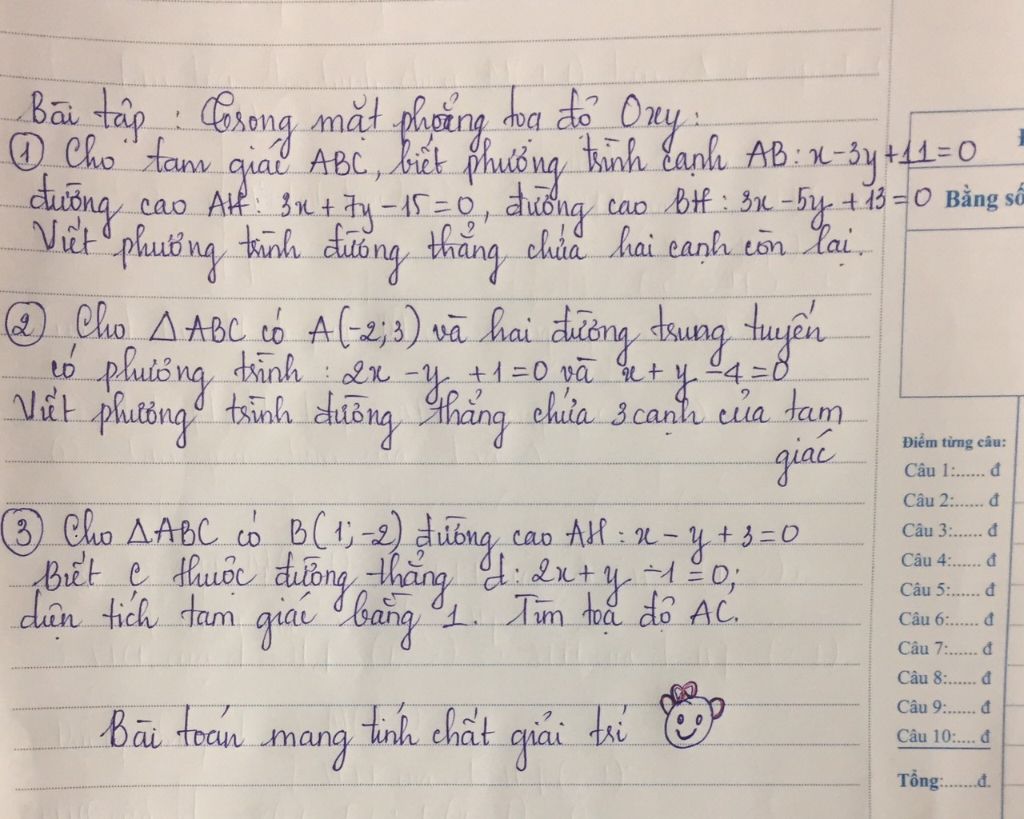 Bài tập : Trong mặt phẳng toạ độ Oxy:
① Cho tam giác ABC, biết phương trình cạnh AB: x-3y+11=0
đường cao AH: 3x+7y-15=0, đường cao BH: 3x-5y+13=0
Viết phương trình đường thẳng chứa hai cạnh còn lại.
② Cho △ABC có A(-2;3) và hai đường trung tuyến
có phương trình : 2x-y+1=0 và x+y-4=0
Viết phương trình đường thẳng chứa 3 cạnh của tam
giác
③ Cho △ABC có B(1;-2) đường cao AH: x-y+3=0
Biết C thuộc đường thẳng d: 2x+y-1=0;
diện tích tam giác bằng 1. Tìm toạ độ AC.
Bài toán mang tính chất giải trí
Bằng số
Điểm từng câu:
Câu 1:...... đ
Câu 2:...... đ
Câu 3:...... đ
Câu 4:...... đ
Câu 5:...... đ
Câu 6:...... đ
Câu 7:...... đ
Câu 8:...... đ
Câu 9:...... đ
Câu 10:.... đ
Tổng:.......đ.